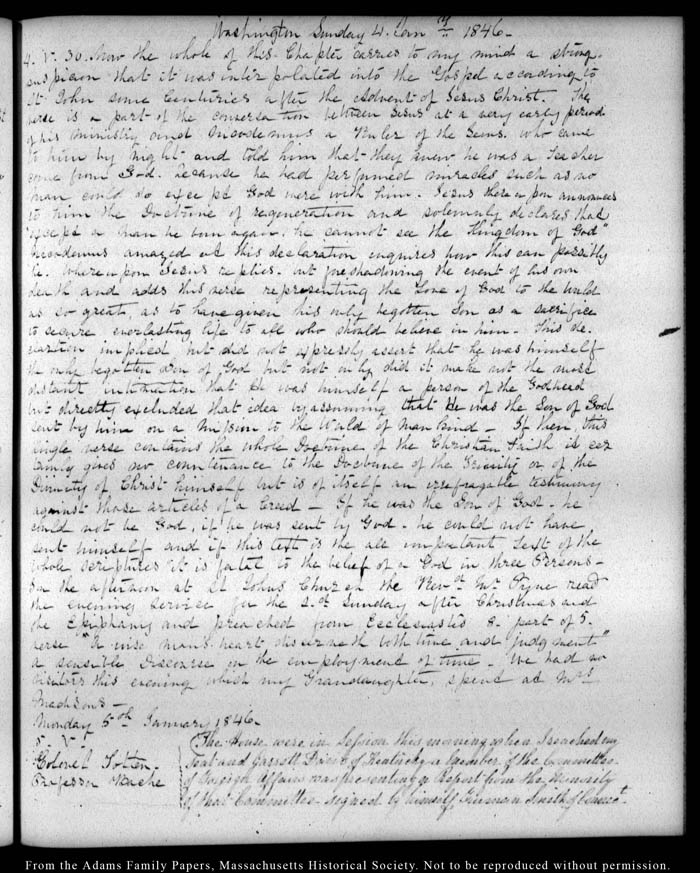 Washington Sunday 4. Jan.y 1846.
4. V. 30. Now the whole of this Chapter carries to my mind a strong
suspicion that it was interpolated into the Gospel according to
St John some Centuries after the Advent of Jesus Christ. The
verse is a part of the conversation between Jesus at a very early period
of his ministry and Nicodemus a Ruler of the Jews. who came
to him by Night and told him that they knew he was a teacher
come from God. because he had performed miracles such as no
man could do except God were with him. Jesus thereupon announces
to him the Doctrine of regeneration and solemnly declares that
"except a man be born again, he cannot see the Kingdom of God"
Nicodemus amazed at this declaration enquires how this can possibly
be. Whereupon Jesus replies. but foreshadowing the event of his own
death and adds this verse representing the Love of God to the World
as so great, as to have given his only begotten Son as a sacrifice
to secure everlasting life to all who should believe in him. This de
claration implied but did not expressly assert that he was himself
the only begotten Son of God but not only did it make not the most
distant intimation that He was himself a person of the Godhead
but directly excluded that idea by assuming that He was the Son of God
sent by him on a Mission to the World of mankind — If then this
single verse contains the whole Doctrine of the Christian faith it cer
tainly gives no countenance to the Doctrine of the Trinity or of the
Divinity of Christ himself but is of itself an irrefragable testimony
against those articles of a Creed — If he was the Son of God. he
could not be God, if he was sent by God. he could not have
sent himself and if this text is the all important text of the
whole scriptures it is fatal to the belief of a God in three Persons —
In the afternoon at St Johns Church the Rev.d Mr Pyne read
the evening service for the 2.d Sunday after Christmas and
the Epiphany and preached from Ecclesiastes 8. part of 5.
verse "A wise mans heart discerneth both time and judgment"
a sensible Discourse on the employment of time. We had no
visitors this evening which my Grandaughter, spent at Mrs
Madisons —
Monday 5th January 1846.
5. V.
Colonel Totten
Professor Bache
The House were in Session this morning when I reached my
Seat and Garrett Davis of Kentucky a member of the Committee
of Foreign Affairs was presenting a Report from the Minority
of that Committee signed by himself, Truman Smith of Connect.
From the Adams Family Papers, Massachusetts Historical Society. Not to be reproduced without permission.